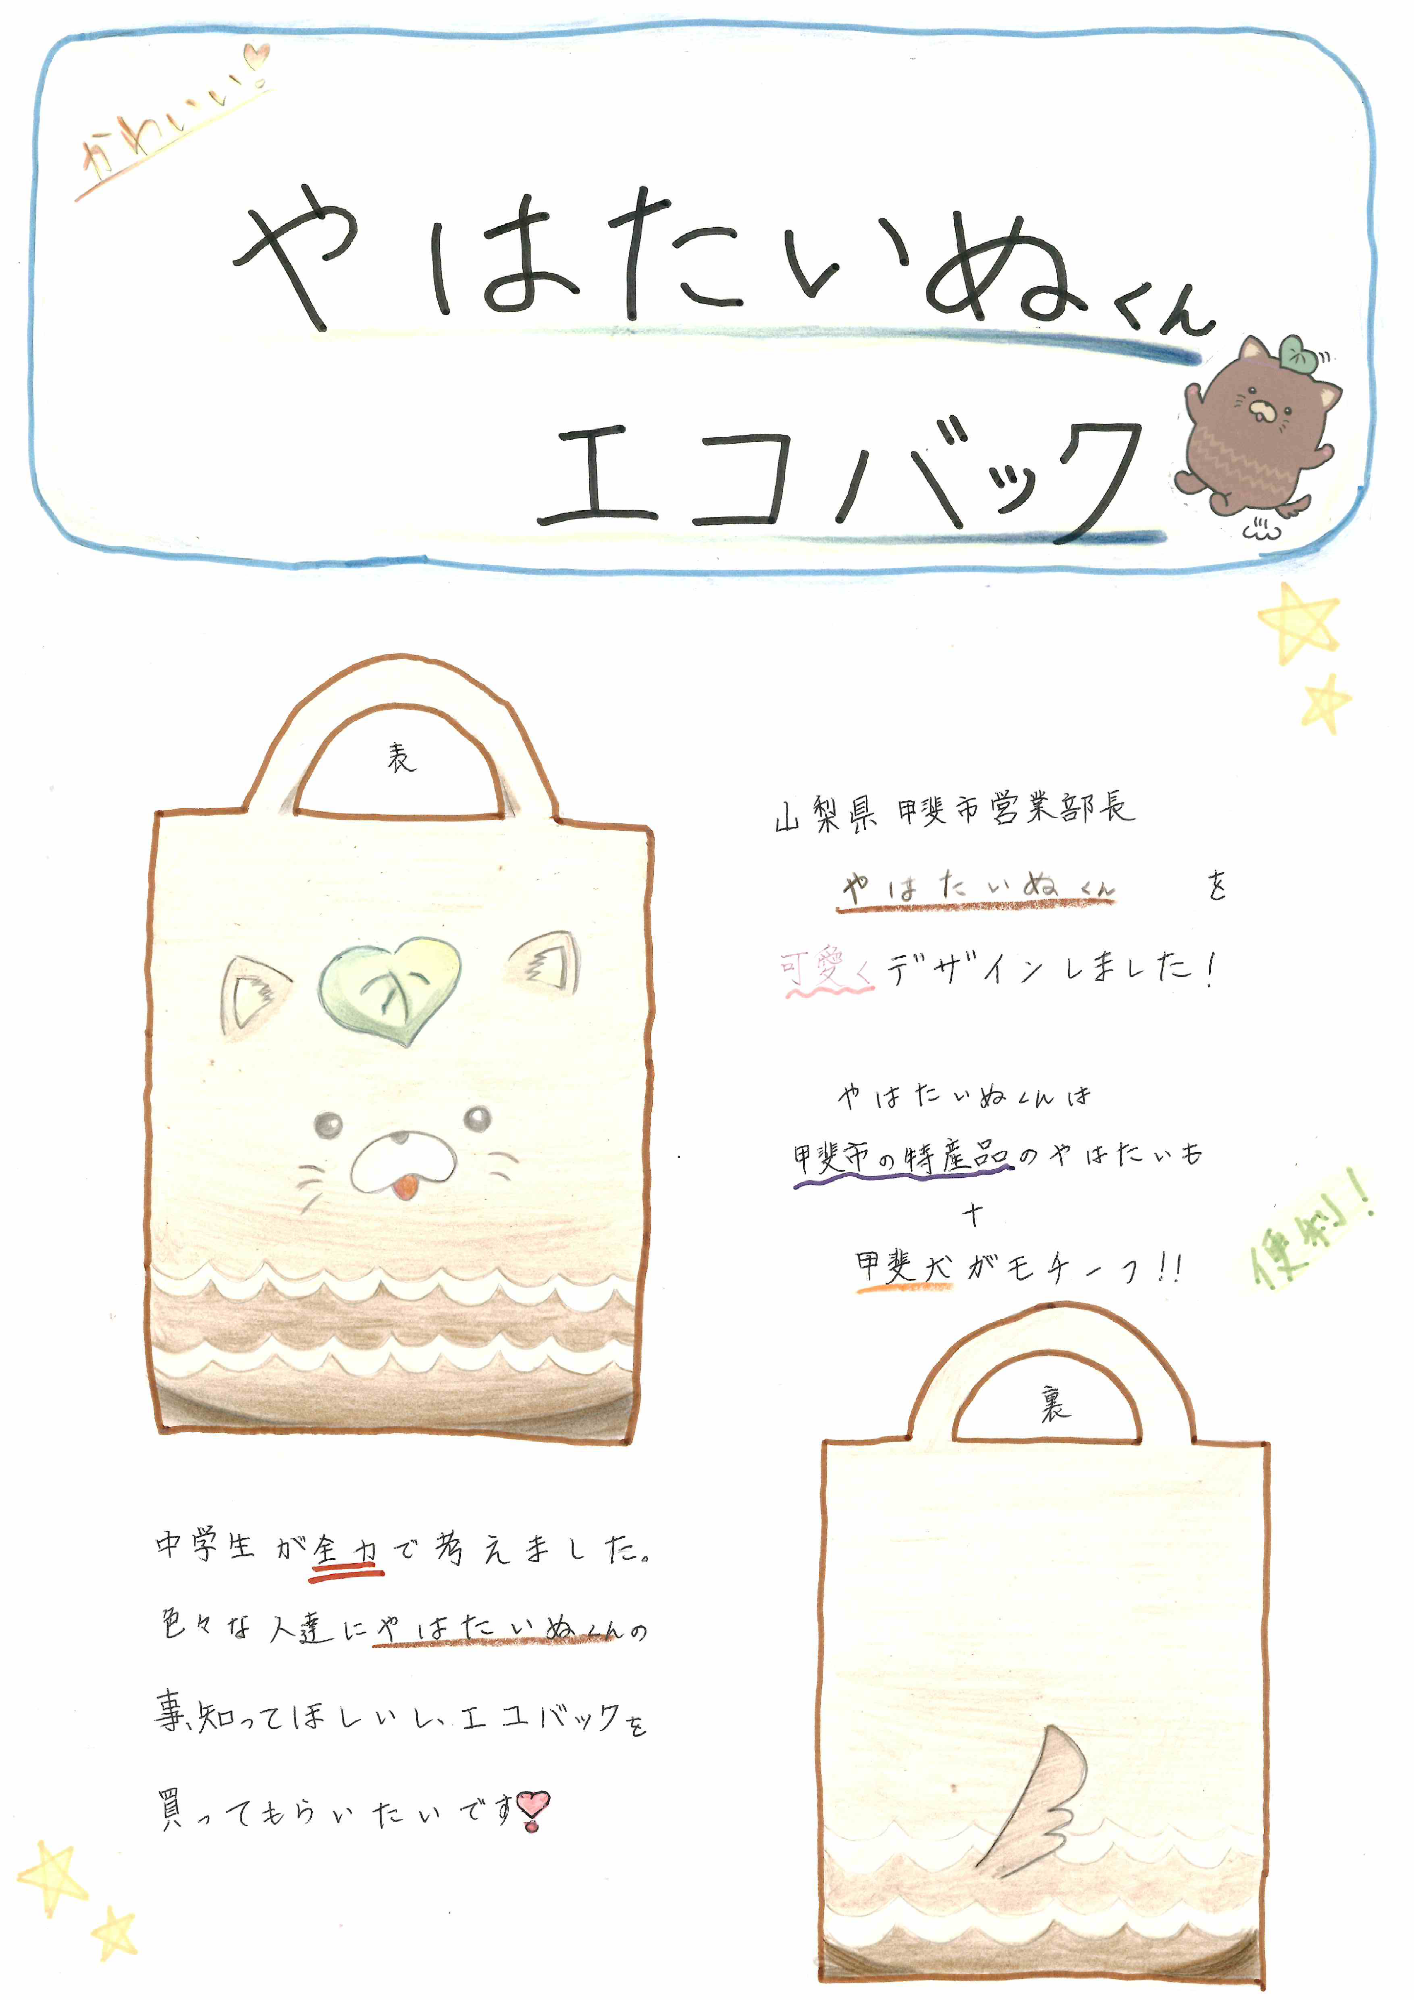 かわいい!
やはたいぬくん
エコバック
表
山梨県甲斐市営業部長
やはたいぬくん を
可愛くデザインしました!
やはたいぬくんは
甲斐市の特産品のやはたいも
+
甲斐犬がモチーフ!!
便利!
裏
中学生が全力で考えました。
色々な人達にやはたいぬくんの
事、知ってほしいし、エコバックを
買ってもらいたいです